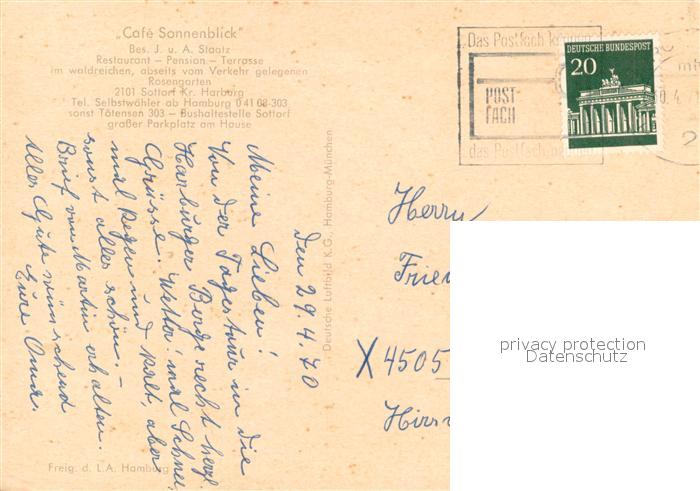 „Café Sonnenblick"
Bes. J. u. A. Staatz
Restaurant – Pension – Terrasse
im waldreichen, abseits vom Verkehr gelegenen
Rosengarten
2101 Sottorf Kr. Harburg
Tel. Selbstwähler ab Hamburg 0 41 08-303
sonst Tötensen 303 – Bushaltestelle Sottorf
großer Parkplatz am Hause
Das Postfach können
POST
FACH
das Postfach
DEUTSCHE BUNDESPOST
20
den 29.4.70
Meine Lieben!
Von der Tagestour in die
Harburger Berge recht herzl.
Grüsse. Wetter: mal Schnee,
mal Regen und kalt, aber
sonst alles schön. –
Brief von Martin erhalten.
Alles Gute wünschend
Eure Oma.
Deutsche Luftbild K.G., Hamburg-München
Herrn
Frie
X 4505
Hirs
privacy protection
Datenschutz
Freig. d. L.A. Hamburg